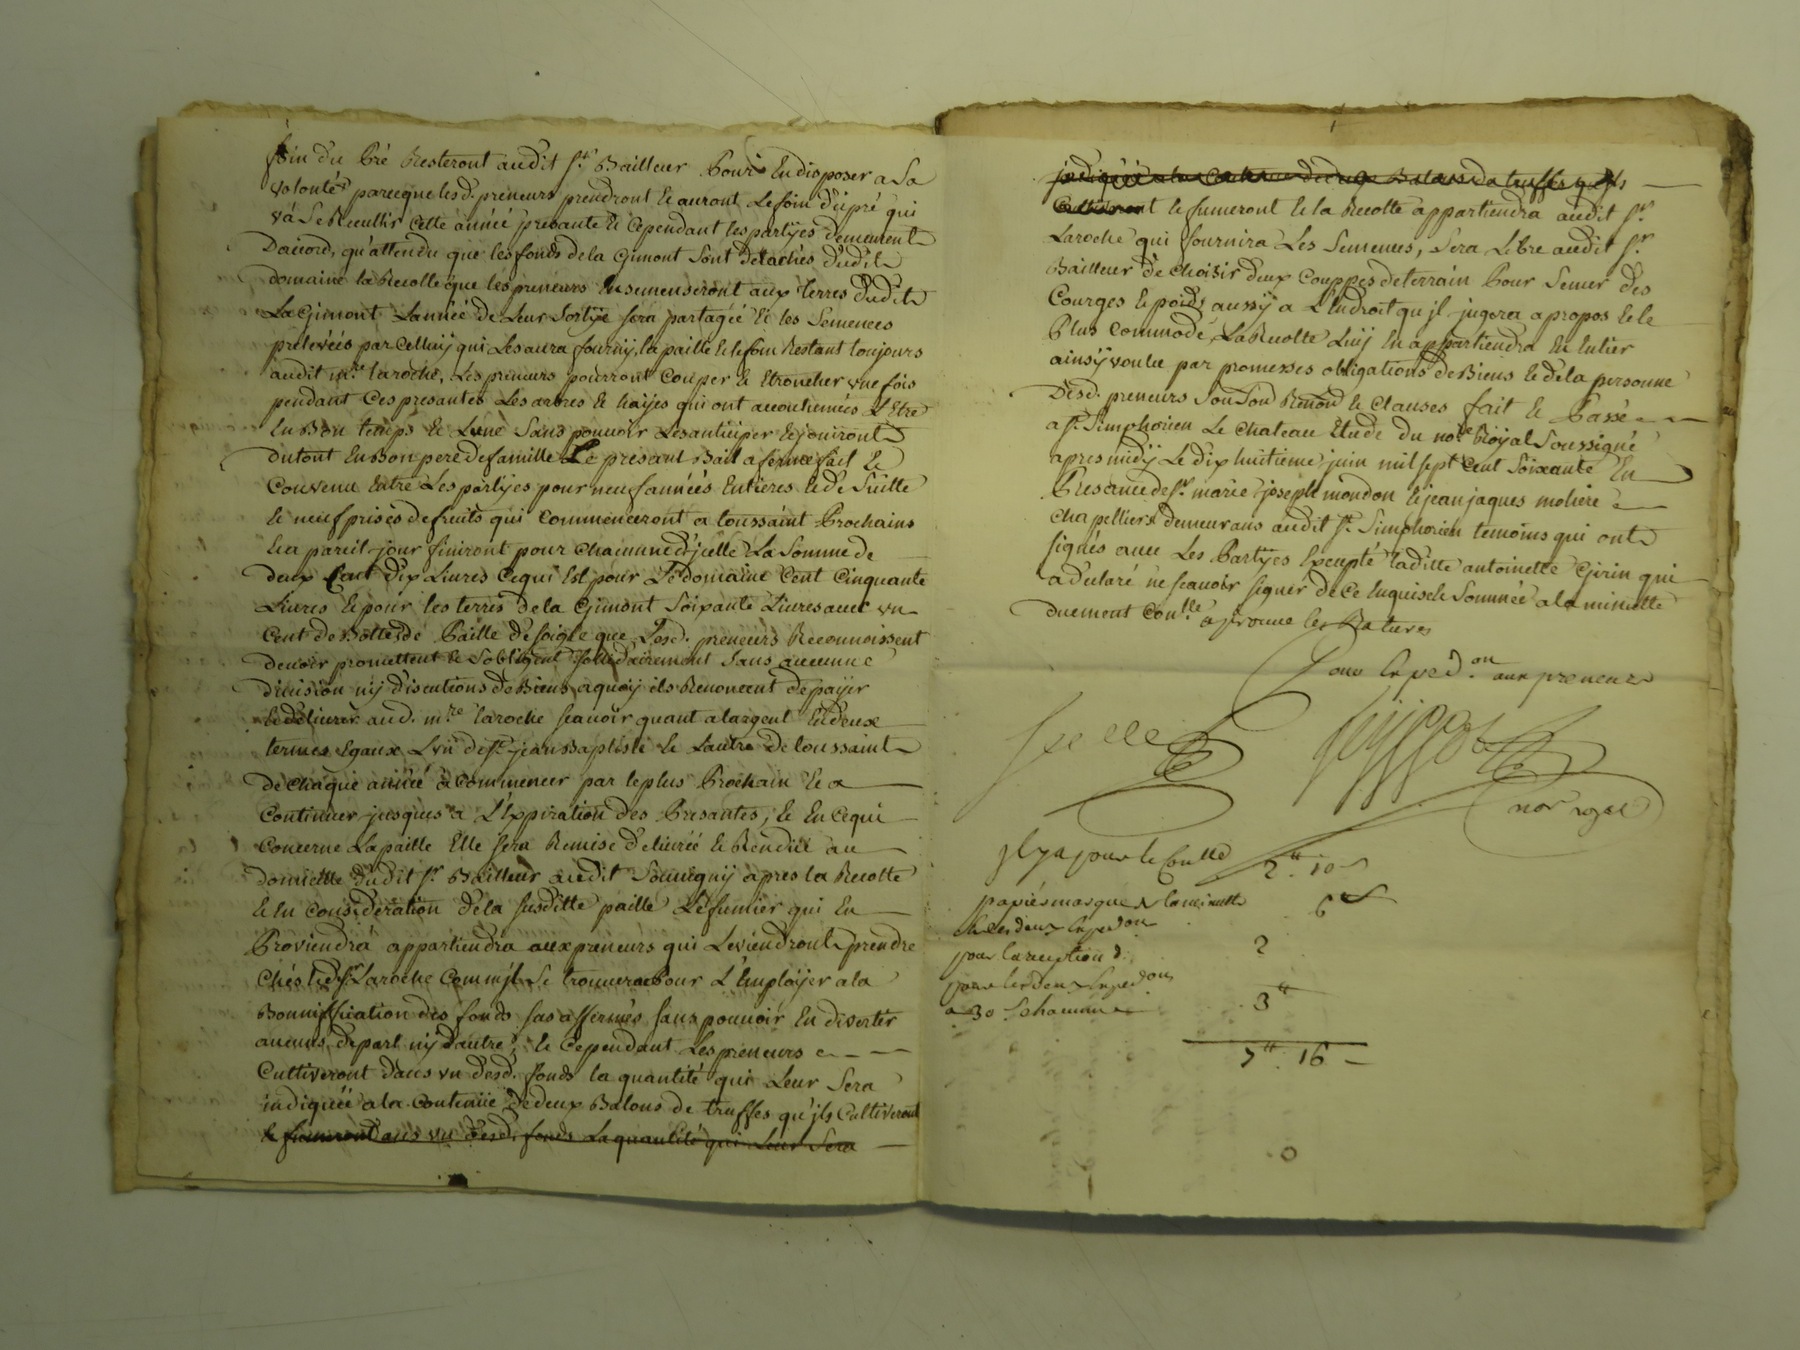 foin du Pré Resteront audit Sr. Bailleur Pour En disposer a Sa
volonté parceque lesd. preneurs prendront le auront Le foin dupré qui
va Se Recullir Cette année presante Et Cependant les partyes demeurent
Daccord, qu'attendu que les fonds de la Gimont Sont detachés dudit
domaine la Recolte que les preneurs Ensemenseront aux Terres dudit
La Gimont Lannée de Leur Sortye sera partagée Et les Semences
prelevées par Celluy qui Les aura fourny, la paille Et le foin Restant toujours
audit mre. laroche, Les preneurs pourront Couper Et Etroncher une fois
pendant Ces presantes Les arbres Et hayes qui ont accoutumées L'Etre
En Bon temps Et Lune Sans pouvoir Les anticiper Et jouiront
du tout En Bon pere de famille Le presant Bail a ferme fait Et
Convenu Entre Les partyes pour neuf années Entieres Et de Suitte
Et neuf prises de fruits qui Commenceront a toussaint Prochains
Et a pareil jour finiront pour chacunne d'jcelle La Somme de
deux Cent dix Livres Ce qui Est pour Le domaine Cent Cinquante
Livres Et pour les terres de la Gimont Soixante Livres avec un
Cent de Bottes de Paille de Soigle que Losd. preneurs Reconnoissent
devoir promettent Et S'obligent Sollidairement Sans aucunne
division ny discutions de Biens a quoy ils Renoncent de payer
Et delivrer aud. mre laroche scavoir quant a largent En deux
termes Egaux L'un de St. jean Baptiste Et Lautre de toussaint
de chaque année a Commencer par le plus Prochain Et a
Continuer jusques a L'Expiration des Presantes, Et En Ce qui
Concerne La paille Elle sera Remise delivrée Et Rendue au
domicille dudit Sr. Bailleur audit Souvigny apres la Recolte
Et En Consideration de la susditte paille Le fumier qui En
Proviendra appartiendra aux preneurs qui Le viendront prendre
Chés Ledt. Sr Laroche Comm'jl Se trouvera Pour L'Employer a la
Bonniffication des fonds sus affermés sans pouvoir En divertir
aucuns depart ny d'autre, Et Cependant Les preneurs
Cultiveront dans un desd. fonds la quantité qui Leur Sera
indiquée a la Contenüe de deux Balons de truffes qu'jls Cultiveront
Et fumeront dans un desd. fonds La quantité qui Leur Sera
jndiquée a la Contenue de deux Balons de truffes qu'jls
Cultiveront Et fumeront Et la Recolte appartiendra audit Sr.
Laroche qui fournira Les Semences, Sera Libre audit Sr.
Bailleur de choisir deux Couppes de terrain Pour Semer des
Courges Et poids aussy a L'Endroit qu'jl jugera a propos Et le
Plus Commode, La Recolte Luy En appartiendra En Entier
ainsy voulu par promesses obligations de Biens Et de la personne
Desd. preneurs Renond Et Clauses fait Et Passé
a St. Simphorien Le Chateau Etude du nore Royal Soussigné
apres midy Le dix huitieme juin mil sept Cent Soixante En
Presance de Sr. marie joseph mondon Et jean jaques moliere
Chapelliers demeurans audit St. Simphorien temoins qui ont
signés avec Les Partyes Excepté laditte antoinette Girin qui
a declaré ne scavoir signer de Ce Enquise Et Sommée a la minutte
duement Conllé approuve les Ratures
Pour Expedon. aux preneurs
nore royal
jl y a pour le Conlle 2tt. 10s
papiés marque La minutte
Et les deux Expedon 6s
pour la reception d. 2
pour les deux Expedons
a 30s chacunne 3tt
7tt. 16